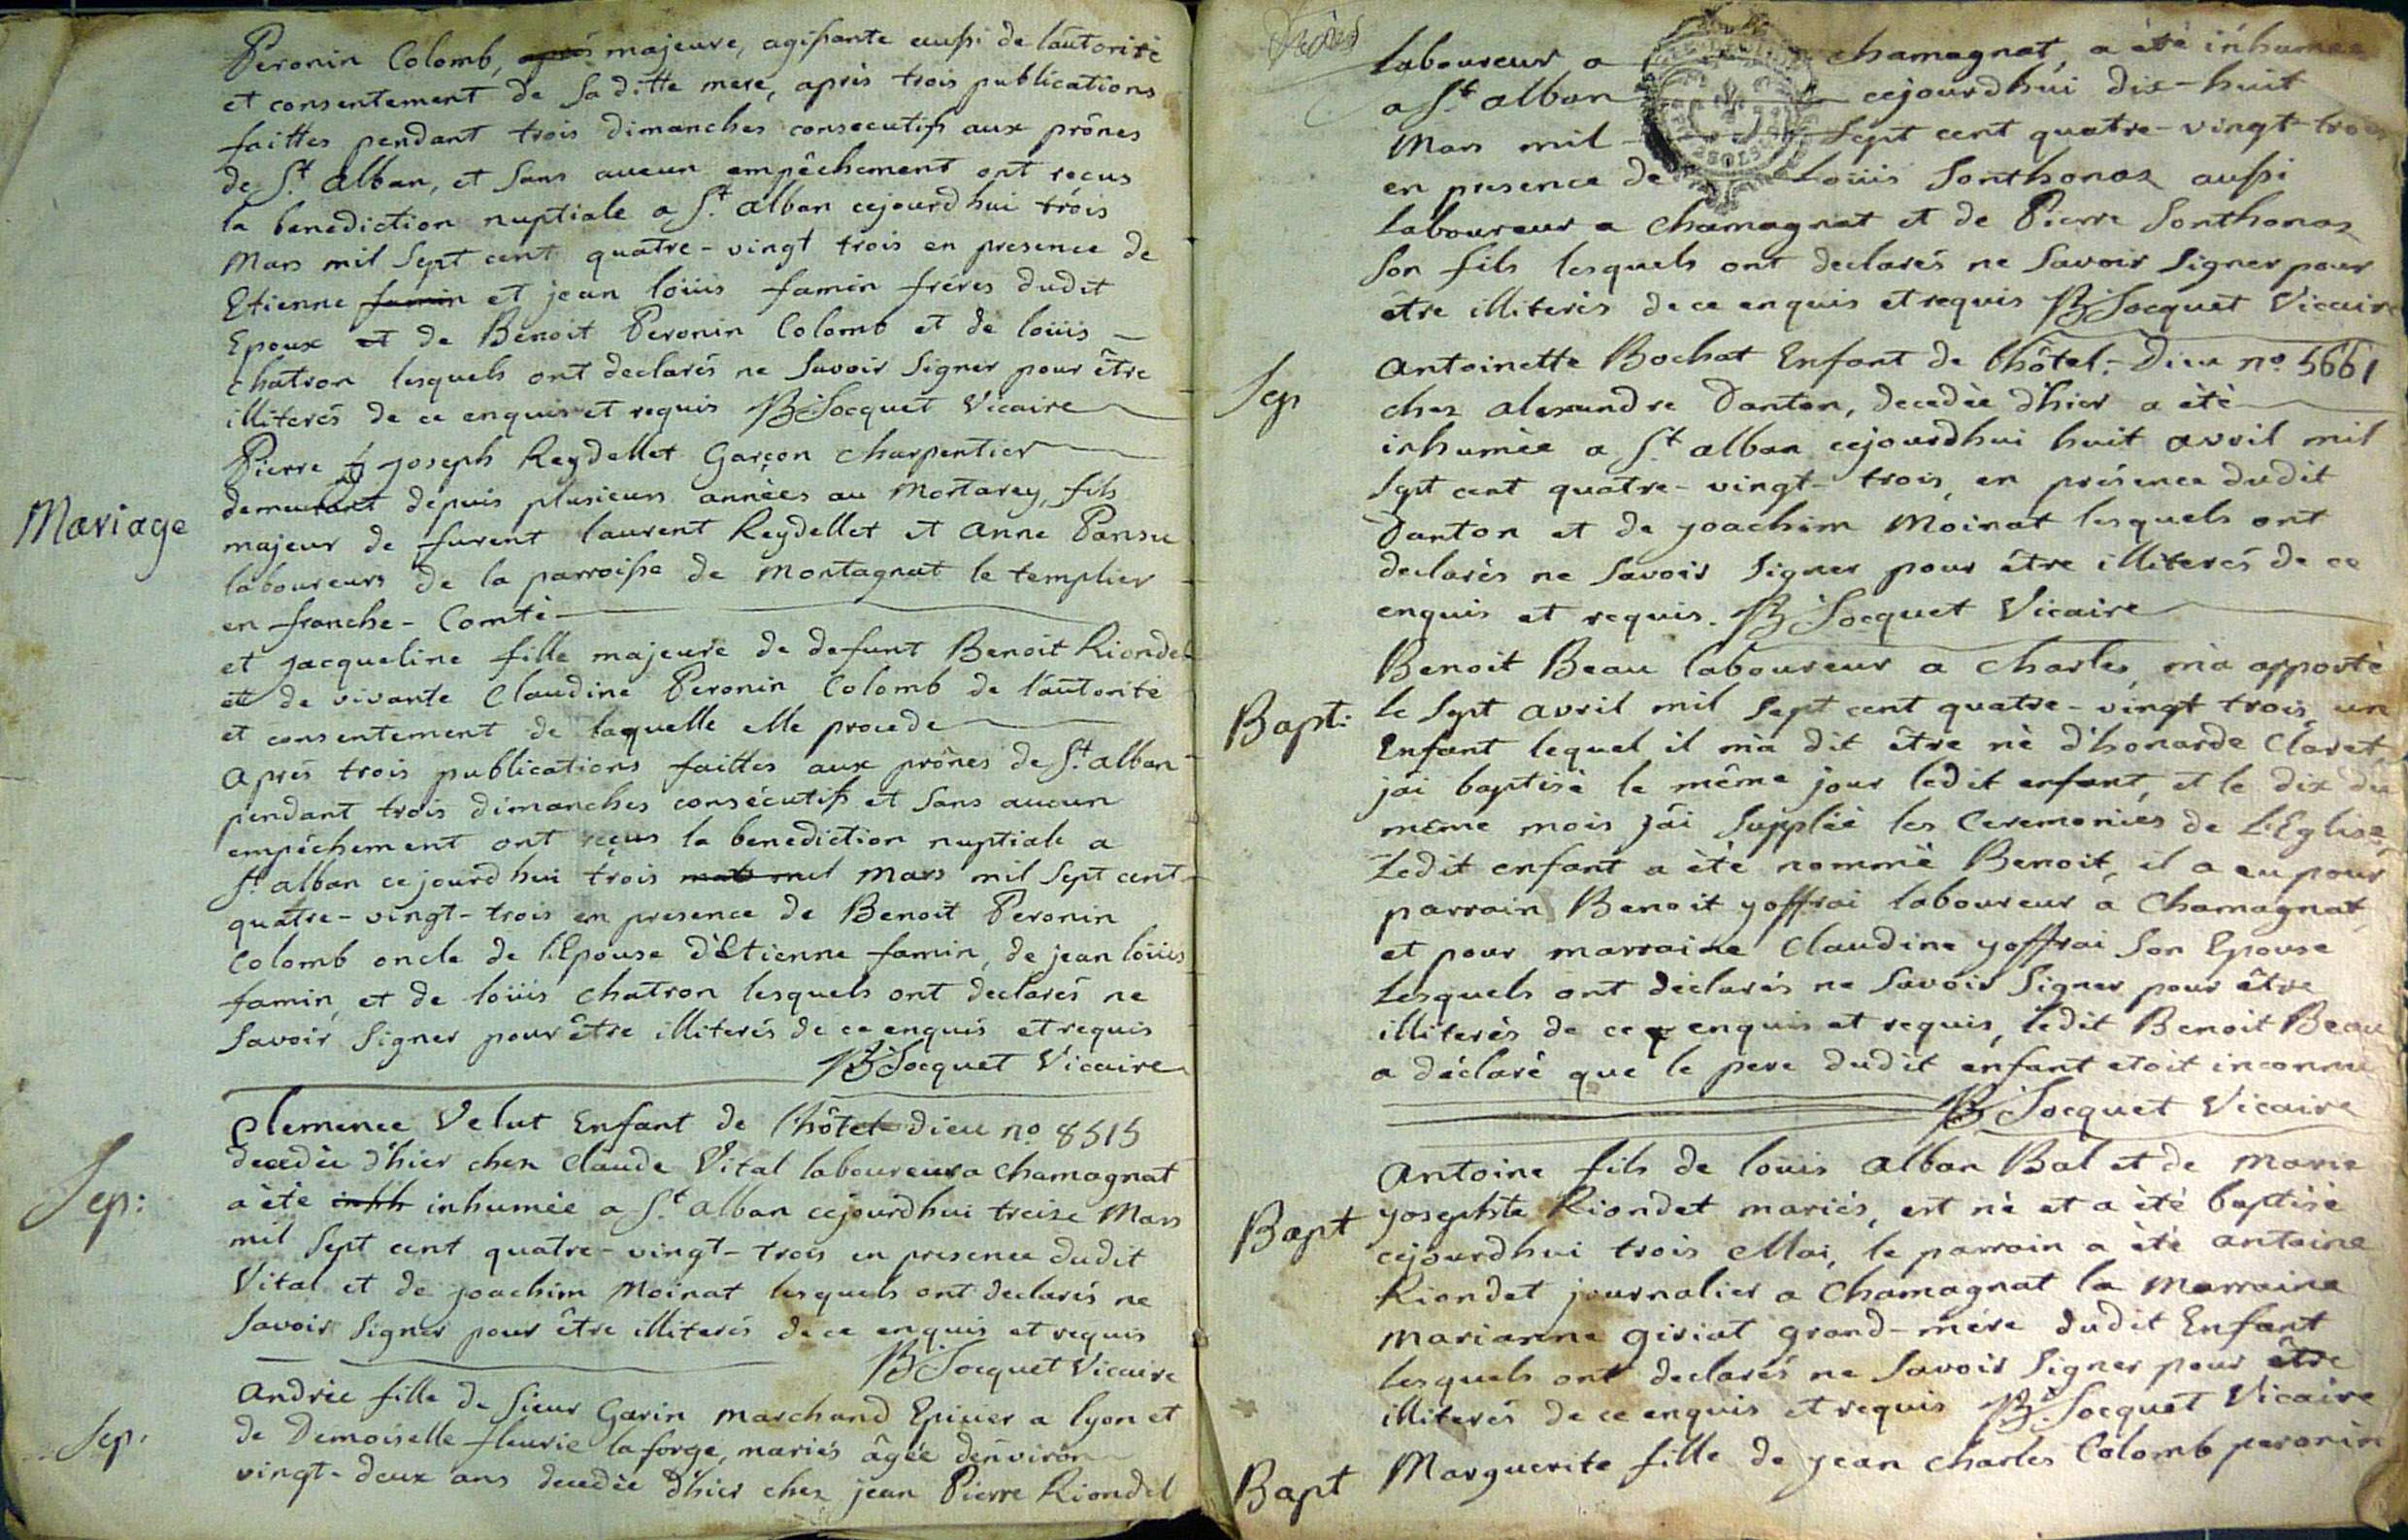 Peronin Colomb, après majeure, agissante aussi de l'autorité
et consentement de sa ditte mere, après trois publications
faittes pendant trois dimanches consecutifs aux prônes
de St. alban, et sans aucun empêchement ont recus
la benediction nuptiale a St. alban cejourd'hui trois
Mars mil sept cent quatre-vingt trois en presence de
Etienne famin et jean loüis famin fréres dudit
Epoux et de Benoit Peronin Colomb et de loüis
chatron lesquels ont declarés ne savoir signer pour être
illiterés de ce enquis et requis B Jocquet Vicaire
Mariage
Pierre joseph Reydellet Garçon charpentier
demeurant depuis plusieurs années au Mortarey, fils
majeur de furent laurent Reydellet et Anne Pansu
laboureurs de la parroisse de Montagnat le templier
en franche-Comté
et jacqueline fille majeure de defunt Benoit Riondel
et de vivante Claudine Peronin Colomb de l'autorité
et consentement de laquelle elle procede
après trois publications faittes aux prônes de St. alban
pendant trois dimanches consécutifs et sans aucun
empéchement ont reçus la benediction nuptiale a
St. alban cejourd'hui trois mars mil Mars mil sept cent
quatre-vingt-trois en presence de Benoit Peronin
Colomb oncle de l'Epouse d'Etienne famin, de jean loüis
famin, et de loüis chatron lesquels ont declarés ne
savoir signer pour être illiterés de ce enquis et requis
B Jocquet Vicaire
Sep:
Clemence Velut Enfant de l'hôtel-dieu no. 8515
decedée d'hier chez Claude Vital laboureur a chamagnat
a été inhumée a St. alban cejourd'hui treize Mars
mil sept cent quatre-vingt-trois en presence dudit
Vital et de joachim Moinat lesquels ont declarés ne
savoir signer pour être illiterés de ce enquis et requis
B Jocquet Vicaire
Sep.
andrée fille de sieur Garin marchand Epicier a lyon et
de Demoiselle fleurie laforge, mariés âgée d'environ
vingt-deux ans decedée d'hier chez jean Pierre Riondel
laboureur a chamagnat, a été inhumée
a St. alban cejourd'hui dix-huit
Mars mil sept cent quatre-vingt-trois
en presence de loüis Sonthonaz aussi
laboureur a chamagnat et de Pierre Sonthonaz
son fils lesquels ont declarés ne savoir signer pour
être illiterés de ce enquis et requis B Jocquet Vicaire
Sep
antoinette Bochat Enfant de l'hôtel-Dieu no. 5661
chez alexandre Danton, decedée d'hier a été
inhumée a St. alban cejourdhui huit avril mil
sept cent quatre-vingt-trois, en présence dudit
Danton et de joachim Moinat lesquels ont
declarés ne savoir signer pour être illiterés de ce
enquis et requis. B Jocquet Vicaire
Bapt:
Benoit Beau laboureur a Charles, m'a apporté
le sept avril mil sept cent quatre-vingt trois, un
Enfant lequel il m'a dit être né d'honarde Claret,
j'ai baptisé le même jour ledit enfant, et le dix du
même mois j'ai supplée les Ceremonies de L'Eglise,
Ledit enfant a été nommé Benoit, il a eu pour
parrain Benoit yoffrai laboureur a Chamagnat,
et pour marraine Claudine yoffrai son Epouse
Lesquels ont déclarés ne savoir signer pour être
illiterés de ce enquis et requis, ledit Benoit Beau
a déclaré que le pere dudit enfant etoit inconnu
B Jocquet Vicaire
Bapt
Antoine fils de louis alban Bal et de Marie
yosephte Riondet mariés, est né et a été baptisé
cejourdhui trois Mai, le parrain a été antoine
Riondet journalier a Chamagnat la Marraine
Marianne giriat grand-mére dudit Enfant
lesquels ont declarés ne savoir signer pour être
illiterés de ce enquis et requis B Jocquet Vicaire
Bapt
Marguerite fille de jean charles Colomb peronin